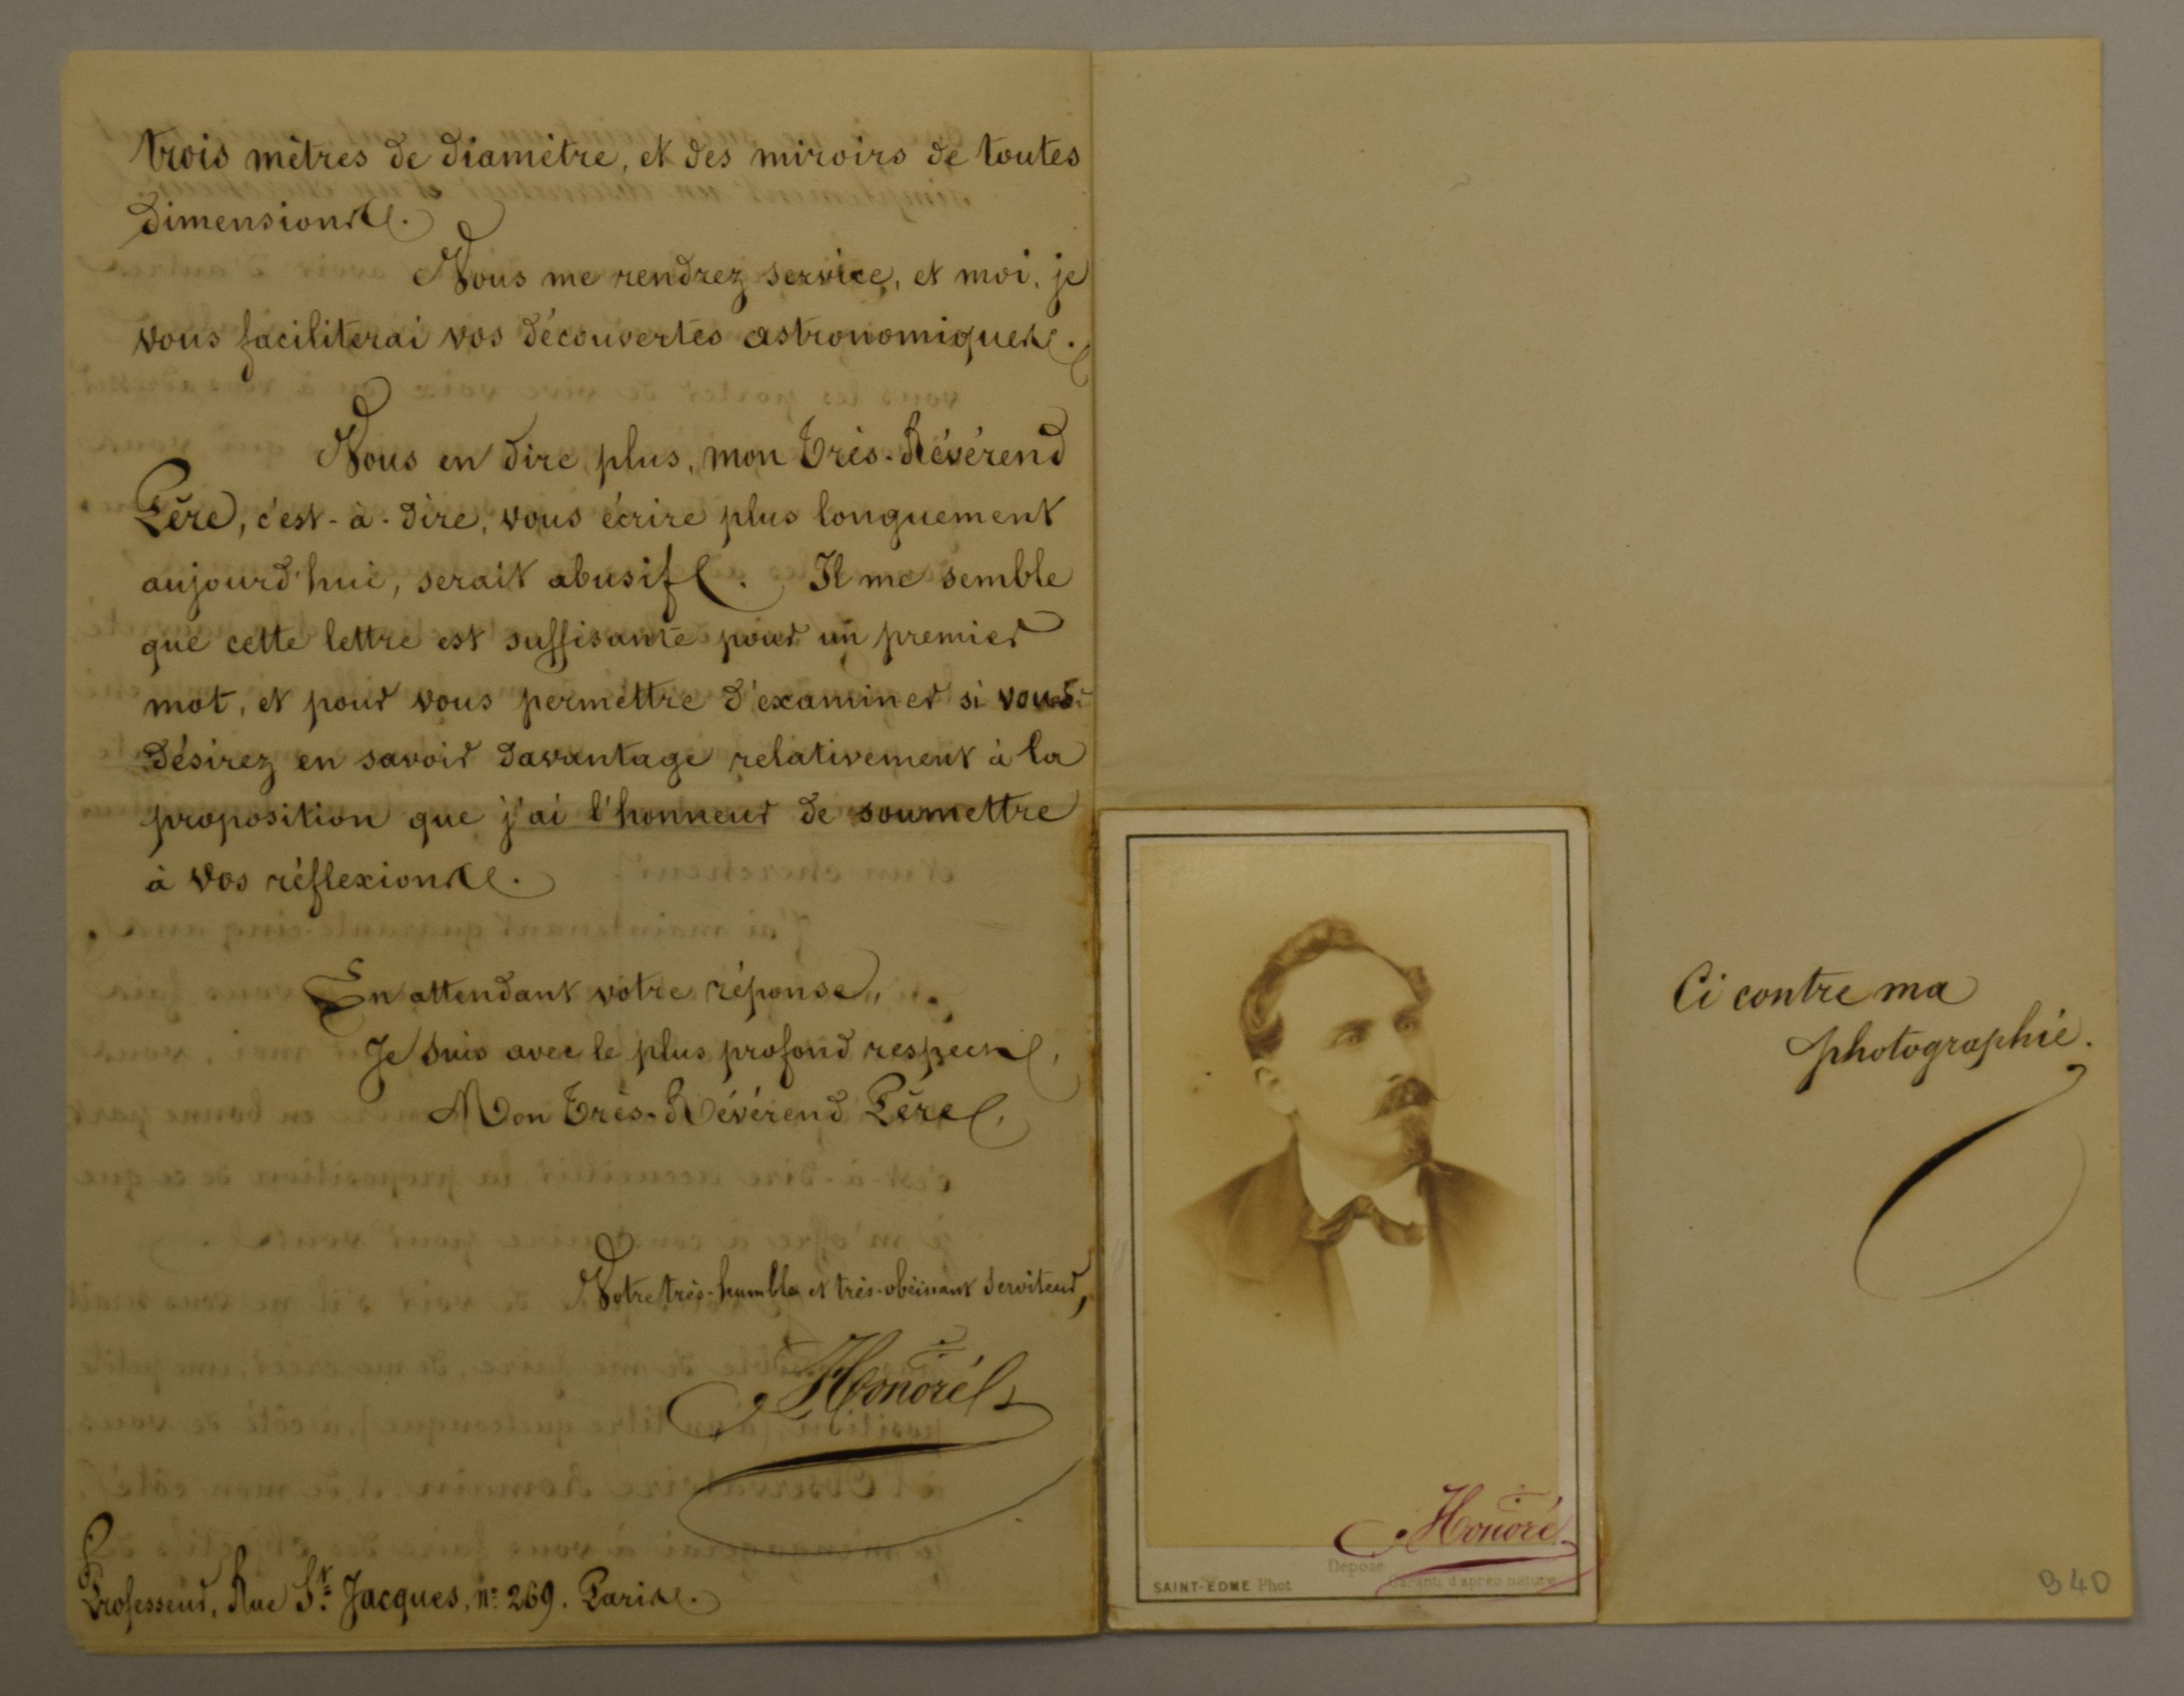 trois mètres de diamètre, et des miroirs de toutes
dimensions.
Vous me rendrez service, et moi, je
vous faciliterai vos découvertes astronomiques.
Vous en dire plus, mon Très-Révérend
Père, c'est-à-dire, vous écrire plus longuement
aujourd'hui, serait abusif. Il me semble
que cette lettre est suffisante pour un premier
mot, et pour vous permettre d'examiner si vous
désirez en savoir davantage relativement à la
proposition que j'ai l'honneur de soumettre
à vos réflexions.
En attendant votre réponse,
Je suis avec le plus profond respect,
Mon Très-Révérend Père,
Votre très-humble et très-obéissant serviteur,
Honoré
Professeur, Rue St. Jacques, n° 269. Paris.
Honoré
Déposé
SAINT-EDME Phot
Garanti d'après nature
Ci contre ma
photographie.
940